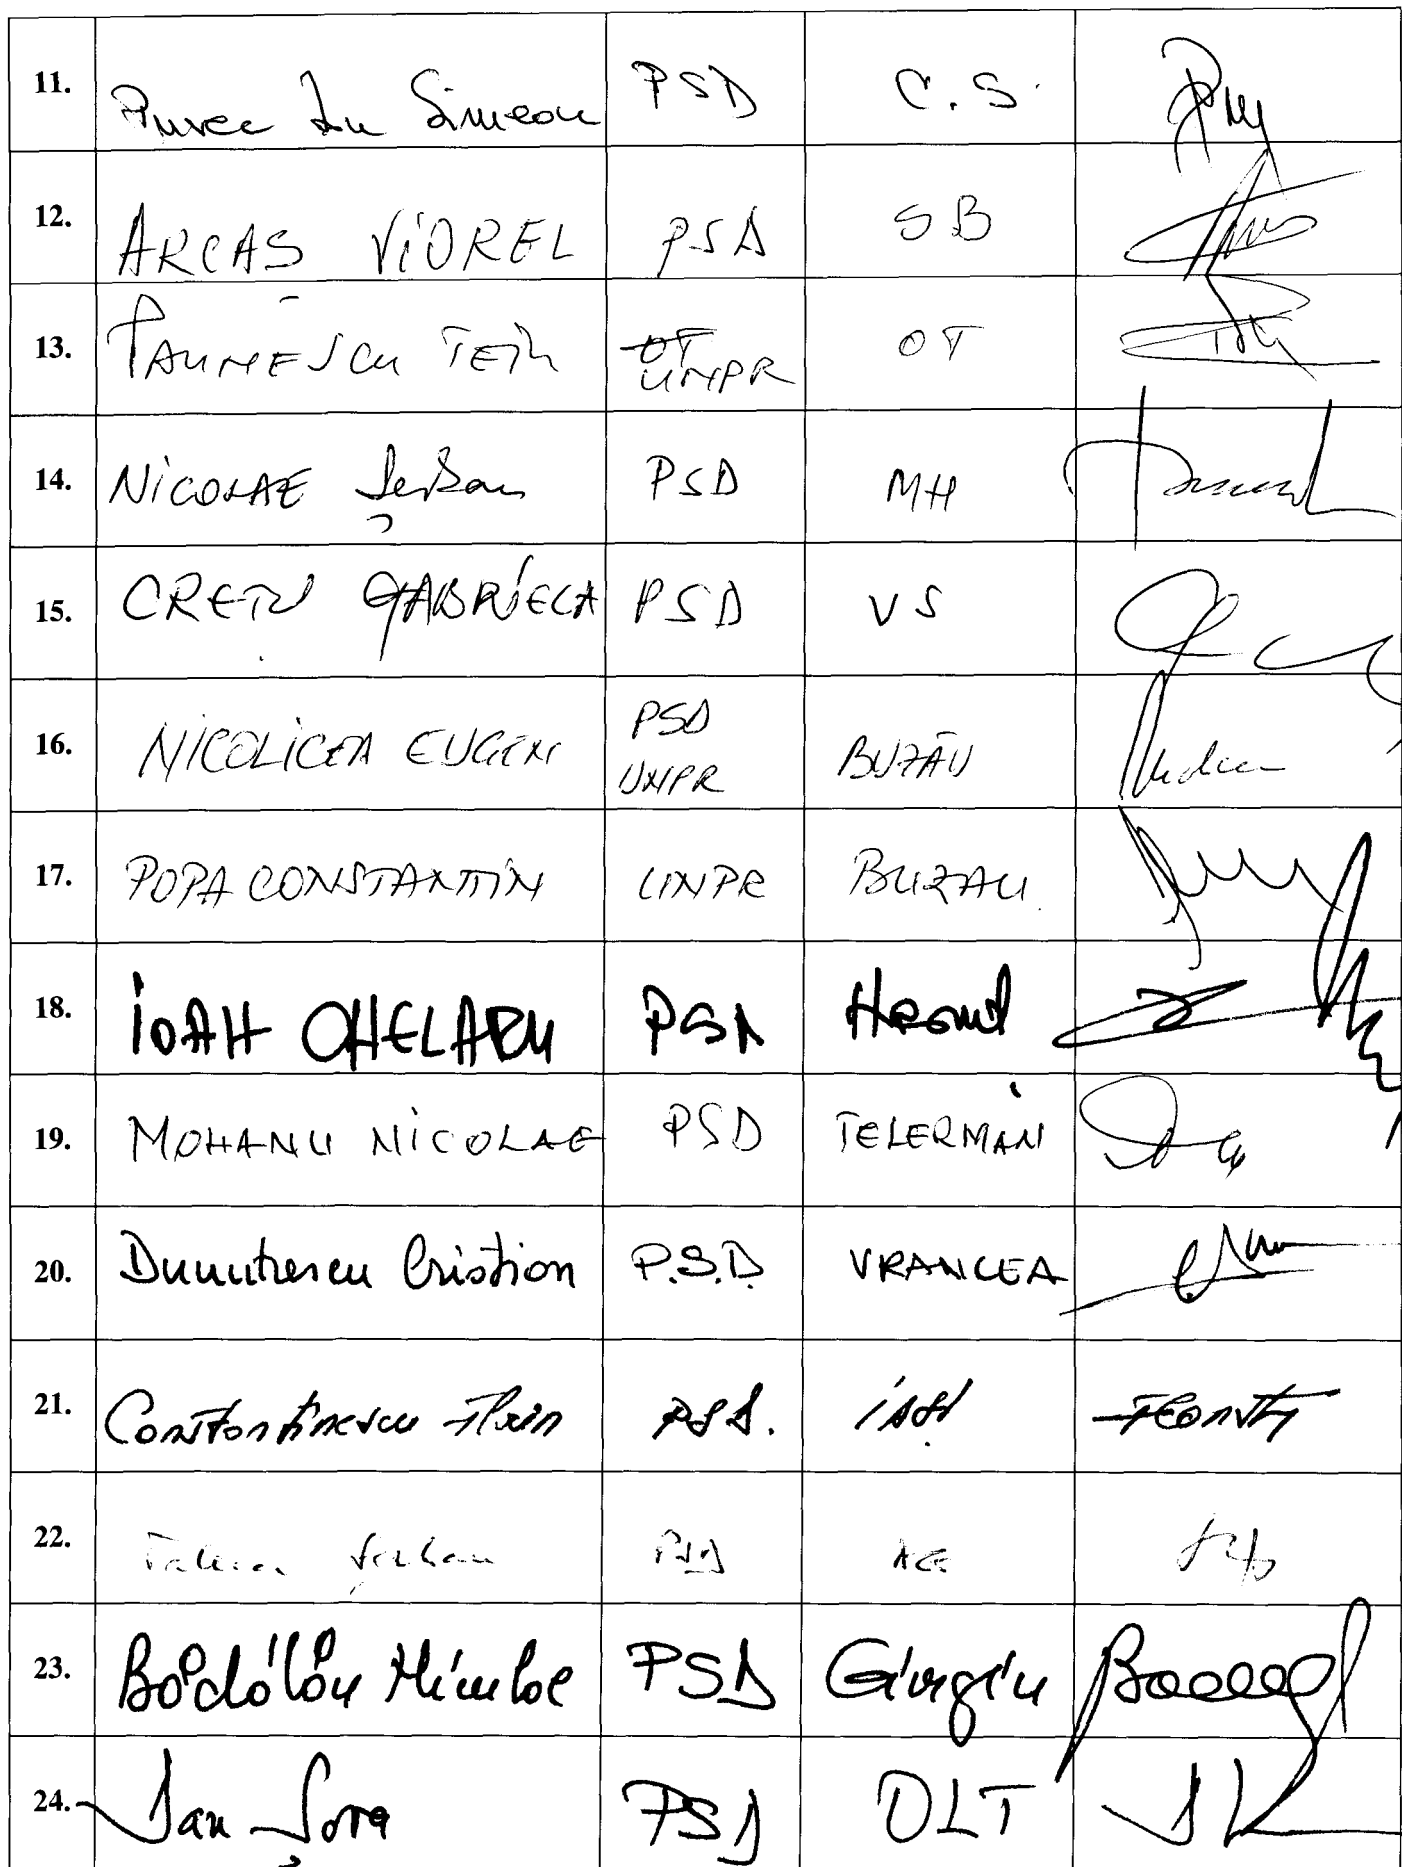 11. Purec Ion Simeon PSD C.S.
12. ARCAS VIOREL PSD SB
13. PAUNESCU TEIU OT OT
UNPR
14. NICOLAE Șerban PSD MH
15. CREȚU GABRIELA PSD VS
16. NICOLICEA EUGEN PSD BUZĂU
UNPR
17. POPA CONSTANTIN UNPR BUZAU
18. IOAN CHELARU PSD Neamț
19. MOHANU NICOLAE PSD TELERMAN
20. Dumitrescu Cristian P.S.D. VRANCEA
21. Constantinescu Florin PSD. IAȘI
22. PSD
23. Bădălău Niculae PSD Giurgiu
24. Dan Șova PSD OLT